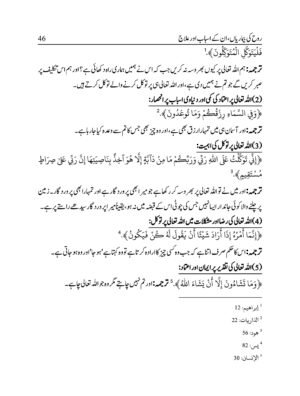 روح کی بیماریاں، ان کے اسباب اور علاج 46
فَلْيَتَوَكَّلِ الْمُتَوَكِّلُونَ﴾.¹
ترجمہ: ہم اللہ تعالی پر کیوں بھروسہ نہ کریں جب کہ اس نے ہمیں ہماری راہ دکھائی ہے؟ اور ہم اس تکلیف پر
صبر کریں گے جو تم نے ہمیں دی ہے، اور اللہ تعالی ہی پر توکل کرنے والے توکل کرتے ہیں۔
(2) اللہ تعالی پر اعتماد کی کمی اور دنیاوی اسباب پر انحصار:
﴿وَفِي السَّمَاءِ رِزْقُكُمْ وَمَا تُوعَدُونَ﴾.²
ترجمہ: اور آسمان ہی میں تمہارا رزق بھی ہے، اور وہ چیز بھی جس کا تم سے وعدہ کیا جا رہا ہے۔
(3) اللہ تعالی پر توکل کی اہمیت:
﴿إِنِّي تَوَكَّلْتُ عَلَى اللَّهِ رَبِّي وَرَبِّكُمْ مَا مِنْ دَابَّةٍ إِلَّا هُوَ آخِذٌ بِنَاصِيَتِهَا إِنَّ رَبِّي عَلَى صِرَاطٍ
مُسْتَقِيمٍ﴾.³
ترجمہ: اور میں نے تو اللہ تعالی پر بھروسہ کر رکھا ہے جو میرا بھی پروردگار ہے اور تمہارا بھی پروردگار۔ زمین
پر چلنے والا کوئی جاندار ایسا نہیں جس کی چوٹی اس کے قبضہ میں نہ ہو، یقیناً میرا پروردگار سیدھے راستے پر ہے۔
(4) اللہ تعالی کی رضا اور مشکلات میں اللہ تعالی پر توکل:
﴿إِنَّمَا أَمْرُهُ إِذَا أَرَادَ شَيْئًا أَنْ يَقُولَ لَهُ كُنْ فَيَكُونُ﴾.⁴
ترجمہ: اس کا حکم صرف اتنا ہے کہ جب وہ کسی چیز کا ارادہ کرتا ہے تو وہ کہتا ہے 'ہو جا' اور وہ ہو جاتی ہے۔
(5) اللہ تعالی کی تقدیر پر ایمان اور اعتماد:
﴿وَمَا تَشَاءُونَ إِلَّا أَنْ يَشَاءَ اللَّهُ﴾.⁵ ترجمہ: اور تم نہیں چاہتے مگر وہ جو اللہ تعالی چاہے۔
¹ إبراهيم: 12
² الذاريات: 22
³ هود: 56
⁴ يس: 82
⁵ الإنسان: 30